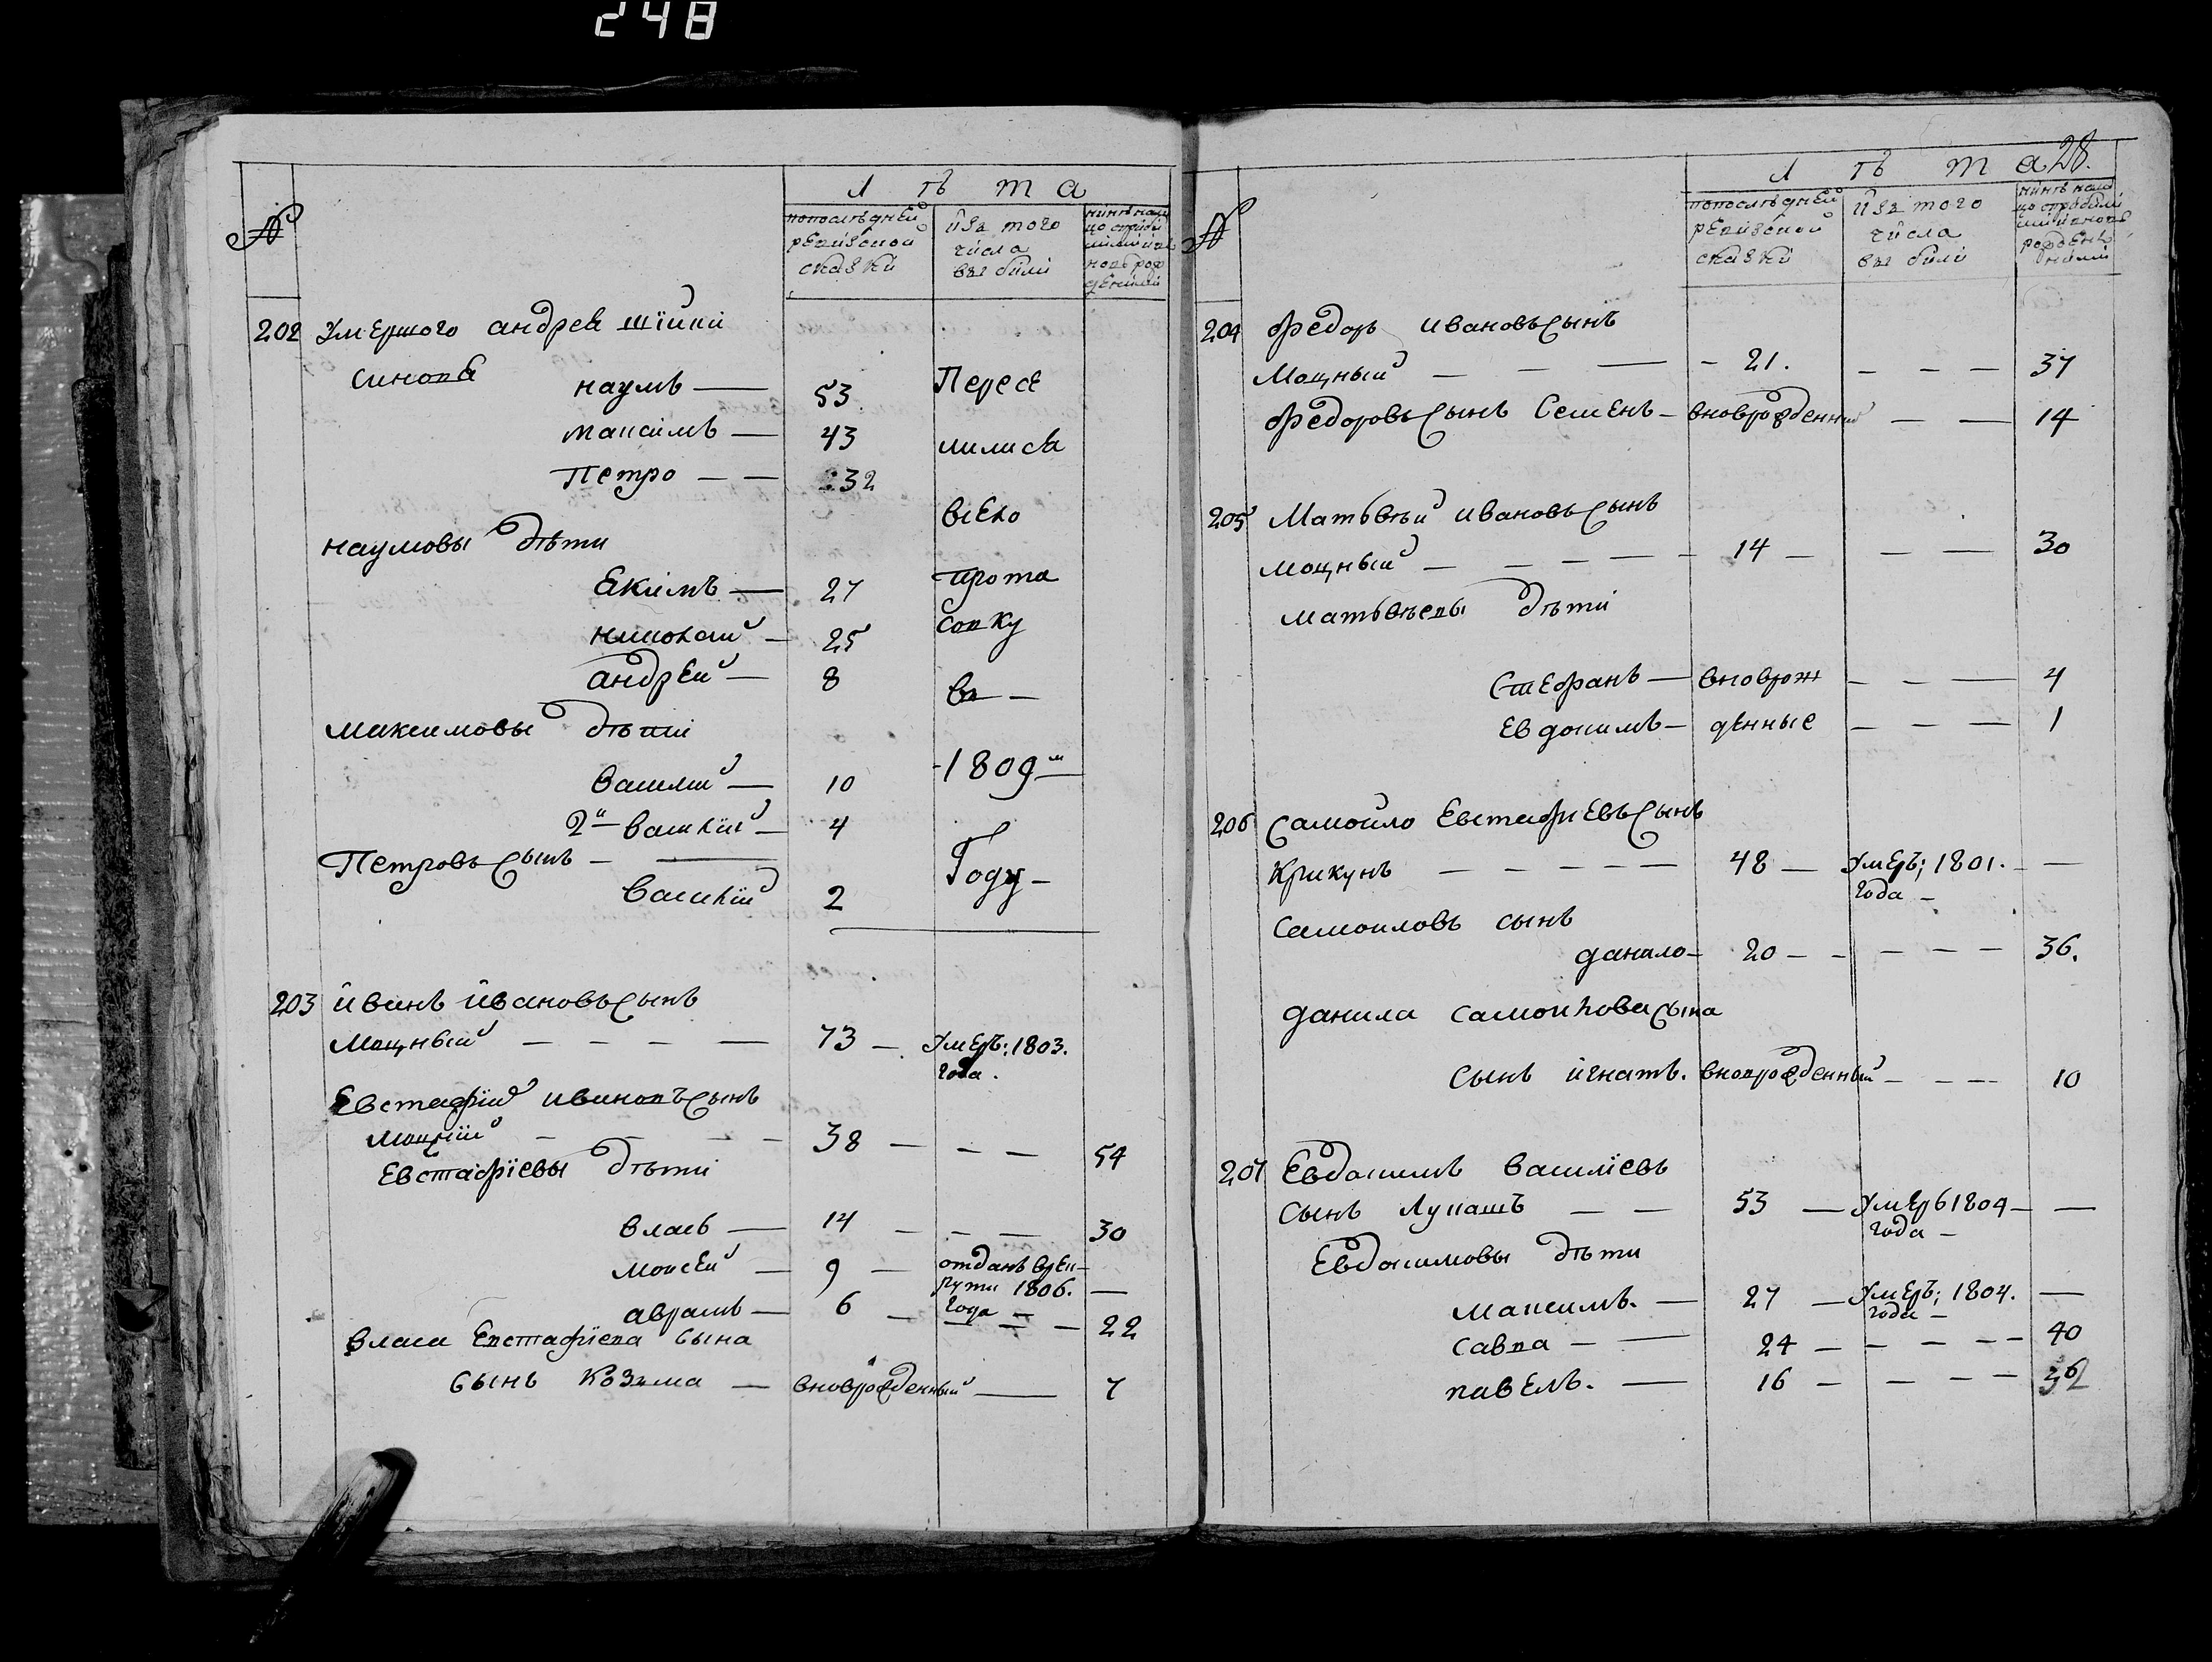 248
Л ѣ т а
№
попослѣдней
ревизской
сказки
изъ того
числа
выбили
202 умершого андрея шійки
синовя
наумъ — 53 Пересе
максимъ — 43 лилися
Петро — — 32
всело
наумовы дѣти
Екимъ — 27 прота
николай — 25 совку
андрей — 8 въ —
максимовы дѣти
василий — 10 1809м
2й василий — 4
Петровъ сынъ — — Году —
василий 2
203 иванъ ивановъ сынъ
Мощный — — — — 73 — умеръ: 1803.
года.
Евстафий ивановъ сынъ
мощний — — — — 38 — — — 54
Евстафіевы дѣти
власъ — 14 — — — 30
моисей — 9 — отданъ врек
рути 1806. —
аврамъ — 6 — года — — — — 22
власа Евстафіева сына
сынъ Козма — вноврожденный — 7
28.
Л ѣ т а
№
попослѣдней
ревизской
сказки
изъ того
числа
выбили
204 федоръ ивановъ сынъ
Мощный — — — — 21. — — — 37
федоровъ сынъ Семенъ — вноврожденний — — 14
205 Матвѣй ивановъ сынъ
мощный — — — — — 14 — — — 30
матвѣевы дѣти
Стефанъ — вноврож — — — 4
Евдокимъ — денные — — — 1
206 самойло Евстафиевъ сынъ
Крикунъ — — — — — 48 — умеръ; 1801. —
года —
самоиловъ сынъ
данило — 20 — — — — — 36.
данила самоилова сына
сынъ игнатъ. вноврожденный — — — 10
207 Евдокимъ василіевъ
сынъ Лупашъ — — 53 — умеръ 1804 — —
года —
Евдокимовы дѣти
максимъ. — 27 — умеръ; 1804. —
года —
савва — — 24 — — — — — 40
павелъ. — 16 — — — — 32